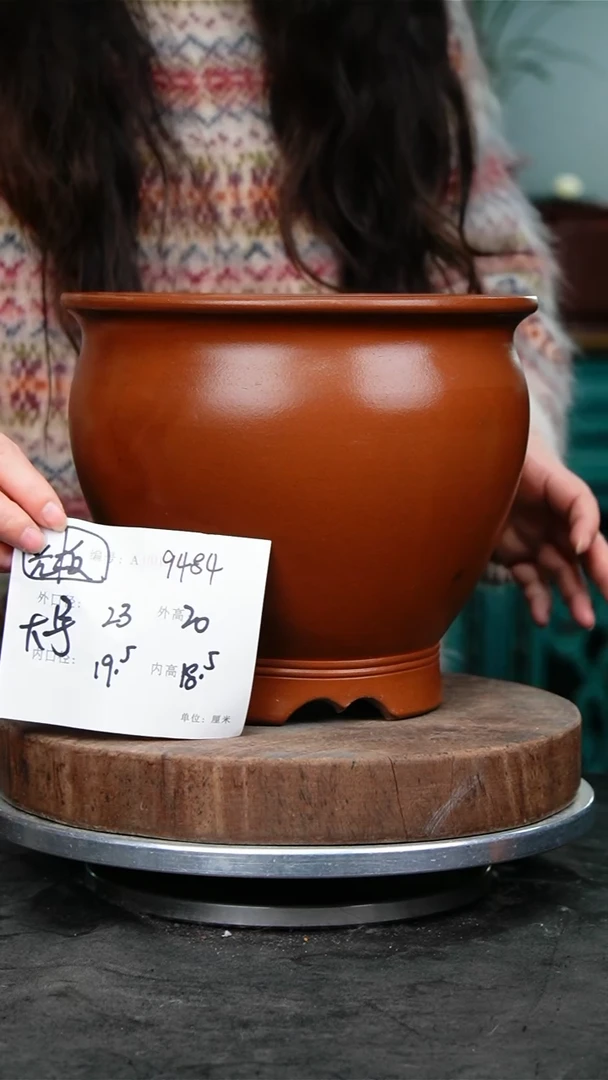 编号：A 9484
外口径： 23 外高 20
大号
内口径： 19.5 内高 18.5
单位：厘米